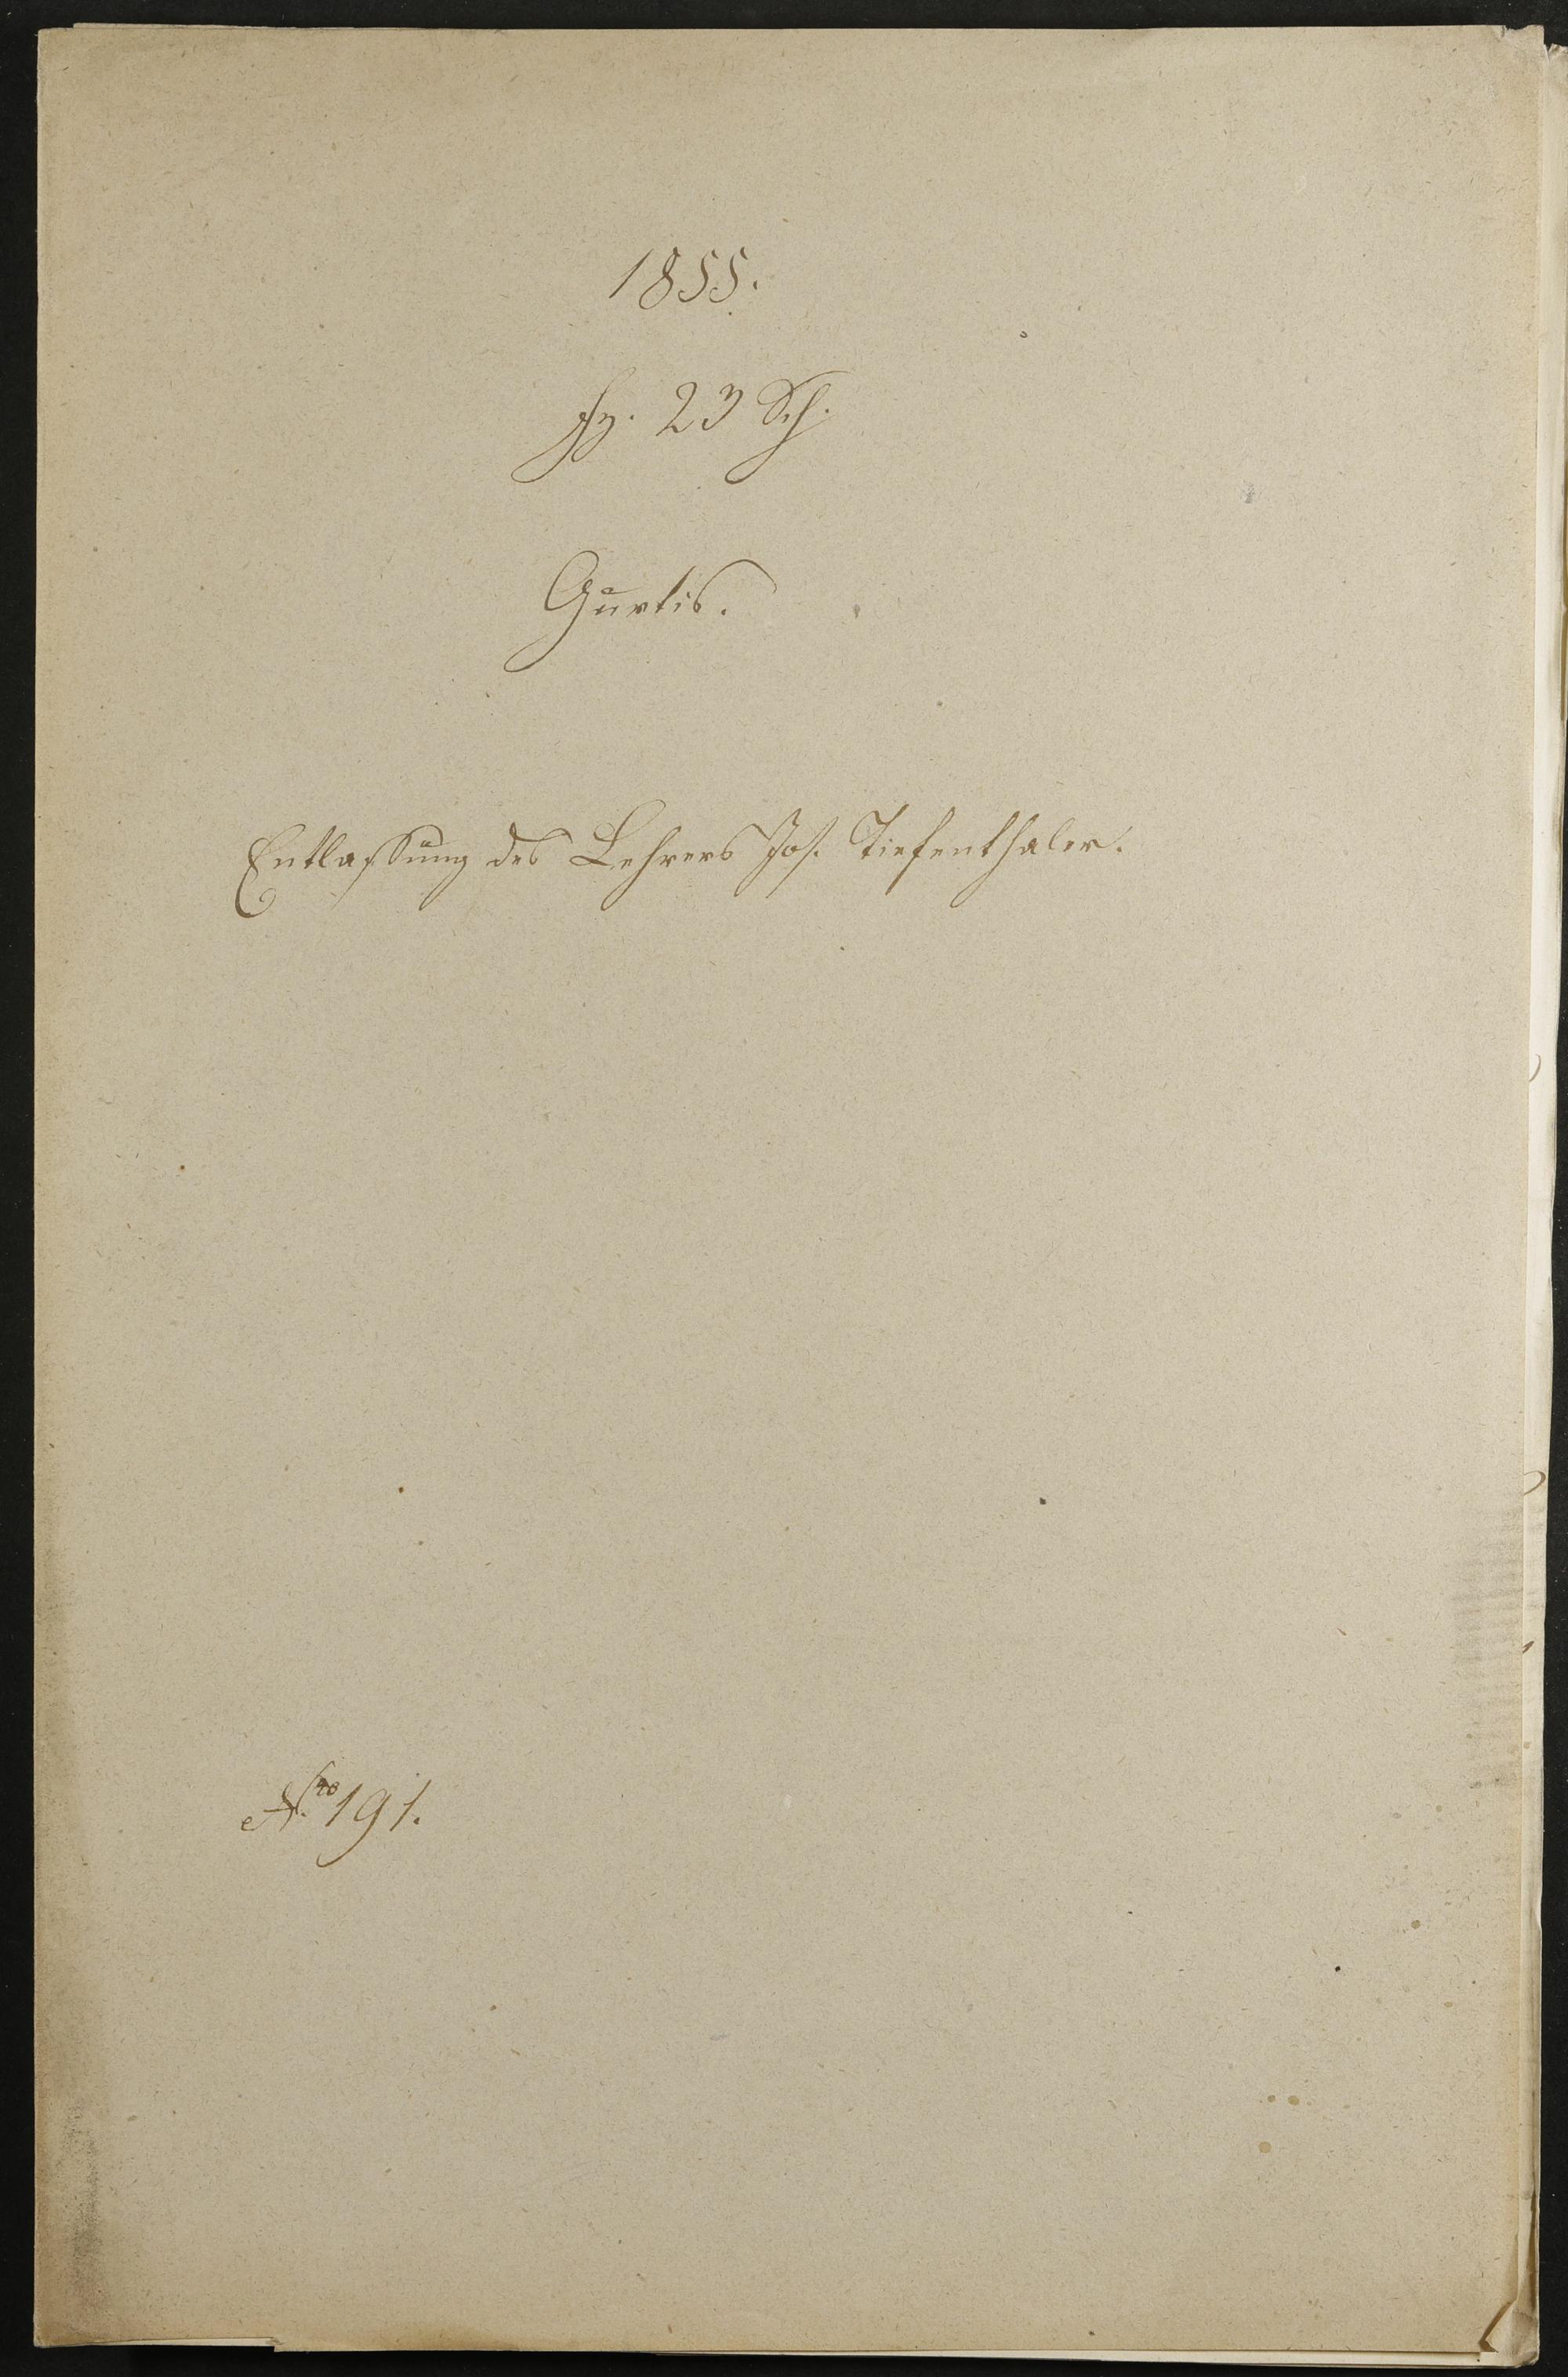 1855.
Fz. 23 Sch.
Gurtis.
Entlassung des Lehrers Jos. Tiefenthaler.
Nro 191.